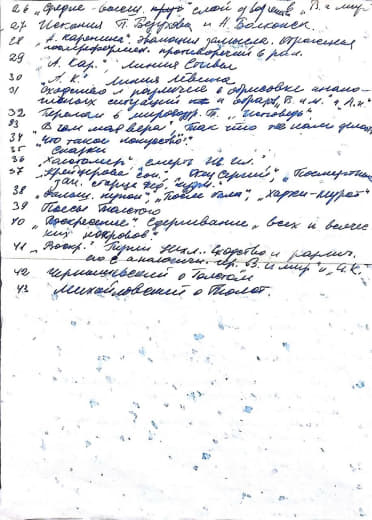 26 „Средне-высш. слой дворянства „В. и мир"
27 Искания П. Безухова и А. Болконск.
28 „А. Каренина". Эволюция замысла. Отражение
пореформен. противоречий в ром.
29 „А. Кар." Линия Стивы
30 „А. К." Линия Левина
31 Сходство и различие в обрисовке анало-
гичных ситуаций и образов „В. и м." и „А. К"
32 Перелом в мировозр. Т. „Исповедь".
33 „В чем моя вера", „Так что же нам делать"
34 „Что такое искусство".
35 Сказки
36 „Холстомер", „Смерть Ив. Ил."
37 „Крейцерова сон." „Отец Сергий", „Посмертные
зап. старца Фед. Кузм."
38 „Фальш. купон", „После бала", „Хаджи-Мурат"
39 Пьесы Толстого
40 „Воскресение". Срывание „всех и всячес
ких покровов"
41 „Воскр." Путь Нехл. Сходство и различ.
его с аналогичн. гер. „В. и мир" и „А.К."
42 Чернышевский о Толстом
43 Михайловский о Толст.